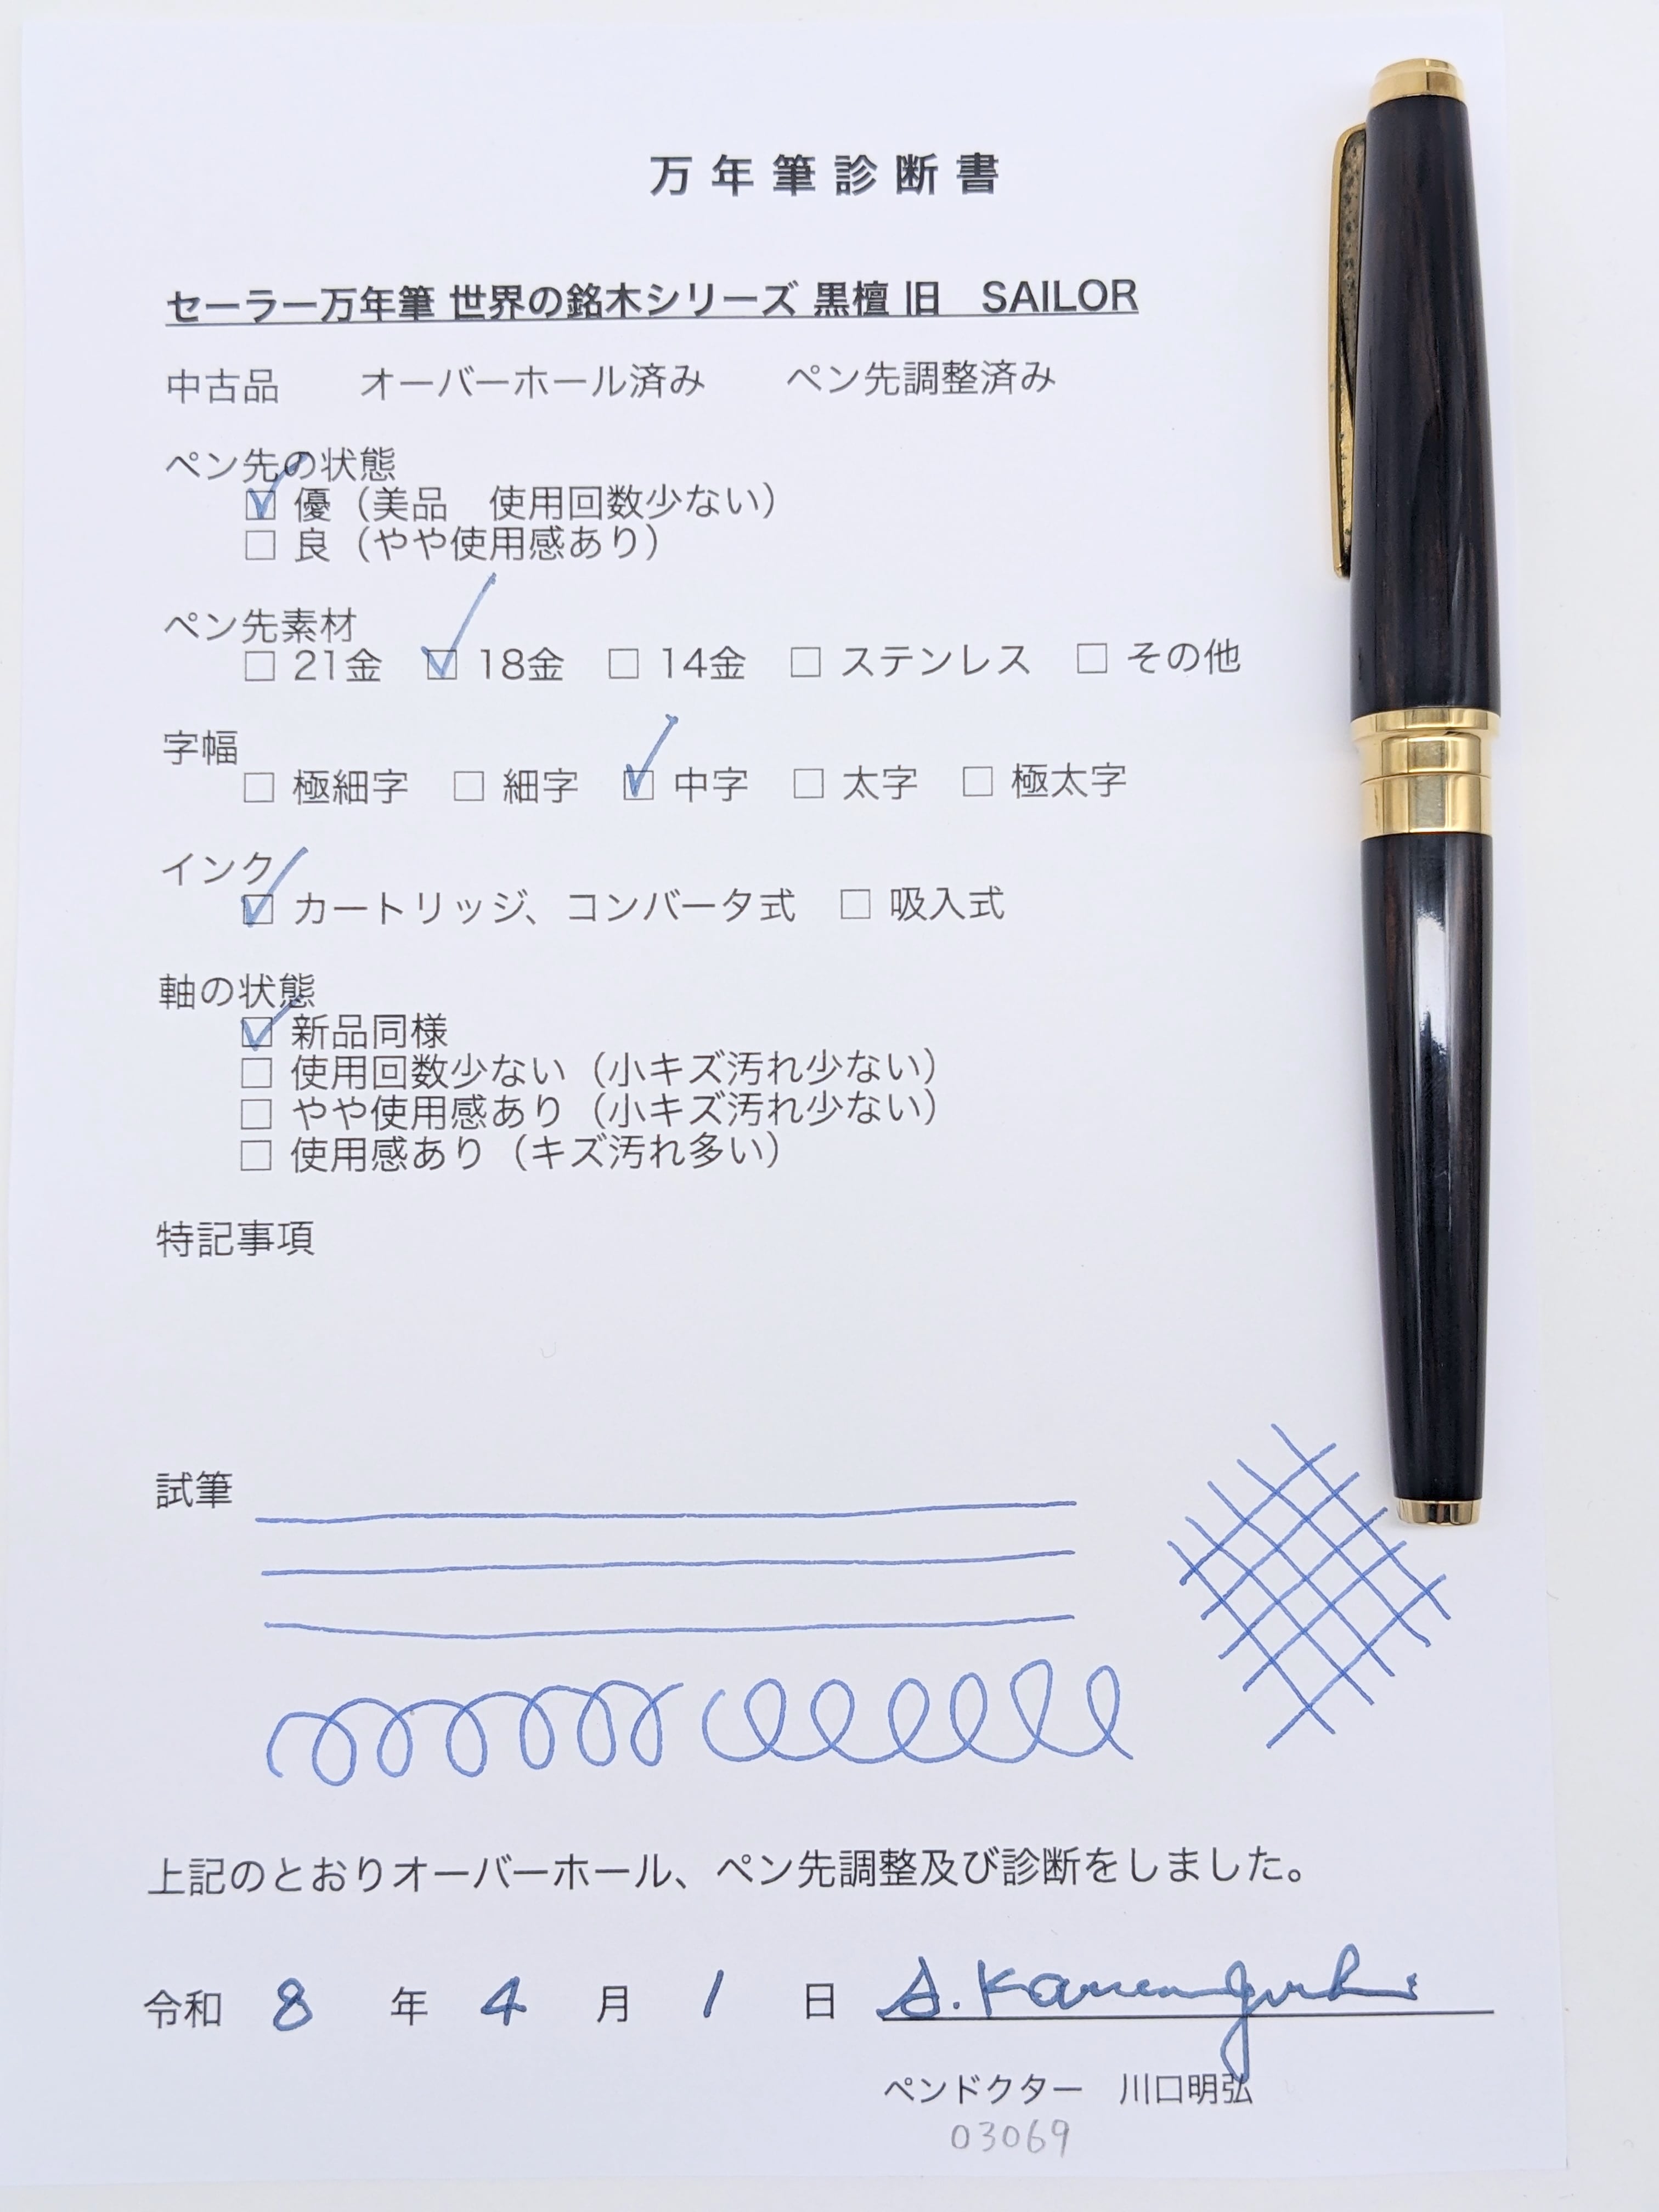 万年筆診断書
セーラー万年筆 世界の銘木シリーズ 黒檀 旧　SAILOR
中古品　　オーバーホール済み　　ペン先調整済み
ペン先の状態
☑ 優（美品　使用回数少ない）
☐ 良（やや使用感あり）
ペン先素材
☐ 21金　☑ 18金　☐ 14金　☐ ステンレス　☐ その他
字幅
☐ 極細字　☐ 細字　☑ 中字　☐ 太字　☐ 極太字
インク
☑ カートリッジ、コンバータ式　☐ 吸入式
軸の状態
☑ 新品同様
☐ 使用回数少ない（小キズ汚れ少ない）
☐ やや使用感あり（小キズ汚れ少ない）
☐ 使用感あり（キズ汚れ多い）
特記事項
試筆
上記のとおりオーバーホール、ペン先調整及び診断をしました。
令和 8 年 4 月 1 日 A. Kawaguchi
ペンドクター　川口明弘
03069